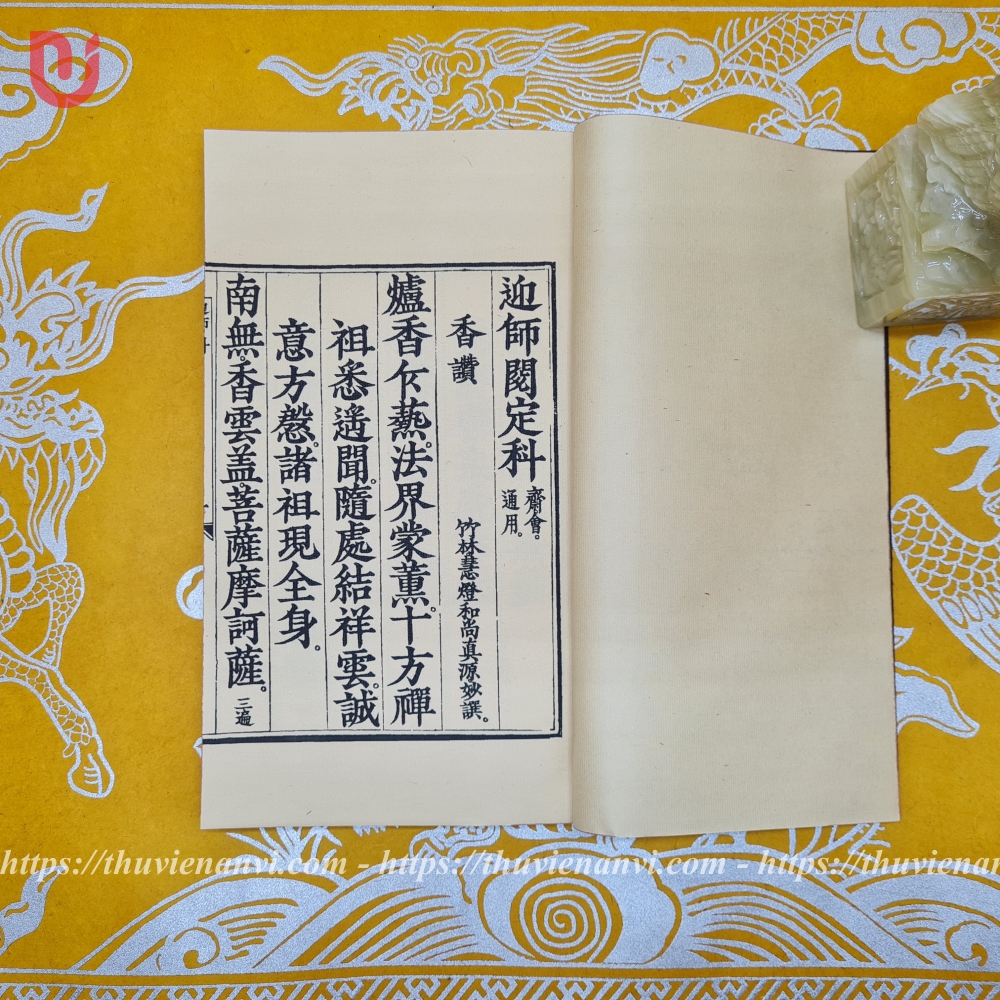 迎師閱定科 齋會。通用。
香讚 竹林慧燈和尚真源妙譔。
爐香乍爇。法界蒙薰。十方禪
祖悉遙聞。隨處結祥雲。誠
意方慇。諸祖現全身。
南無。香雲盖。菩薩摩訶薩。三遍
https://thuvienanvi.com - https://thuvienanvi.com - https://thuviena